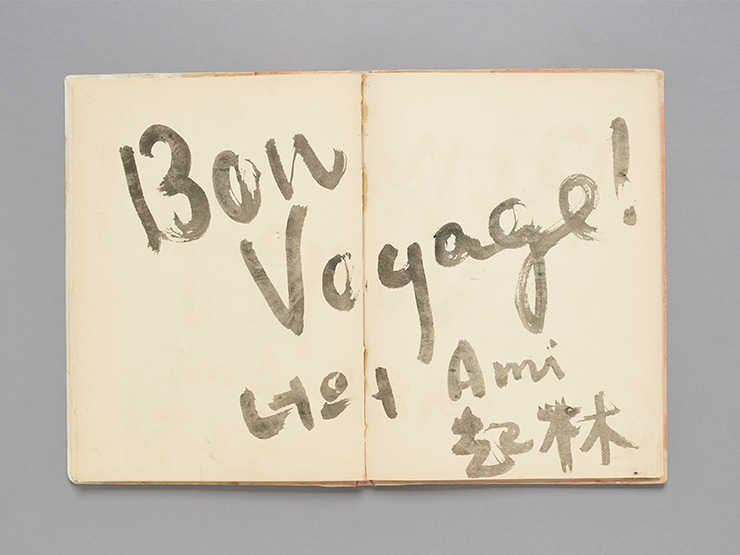 Bon
Voyage!
너의 Ami
起林